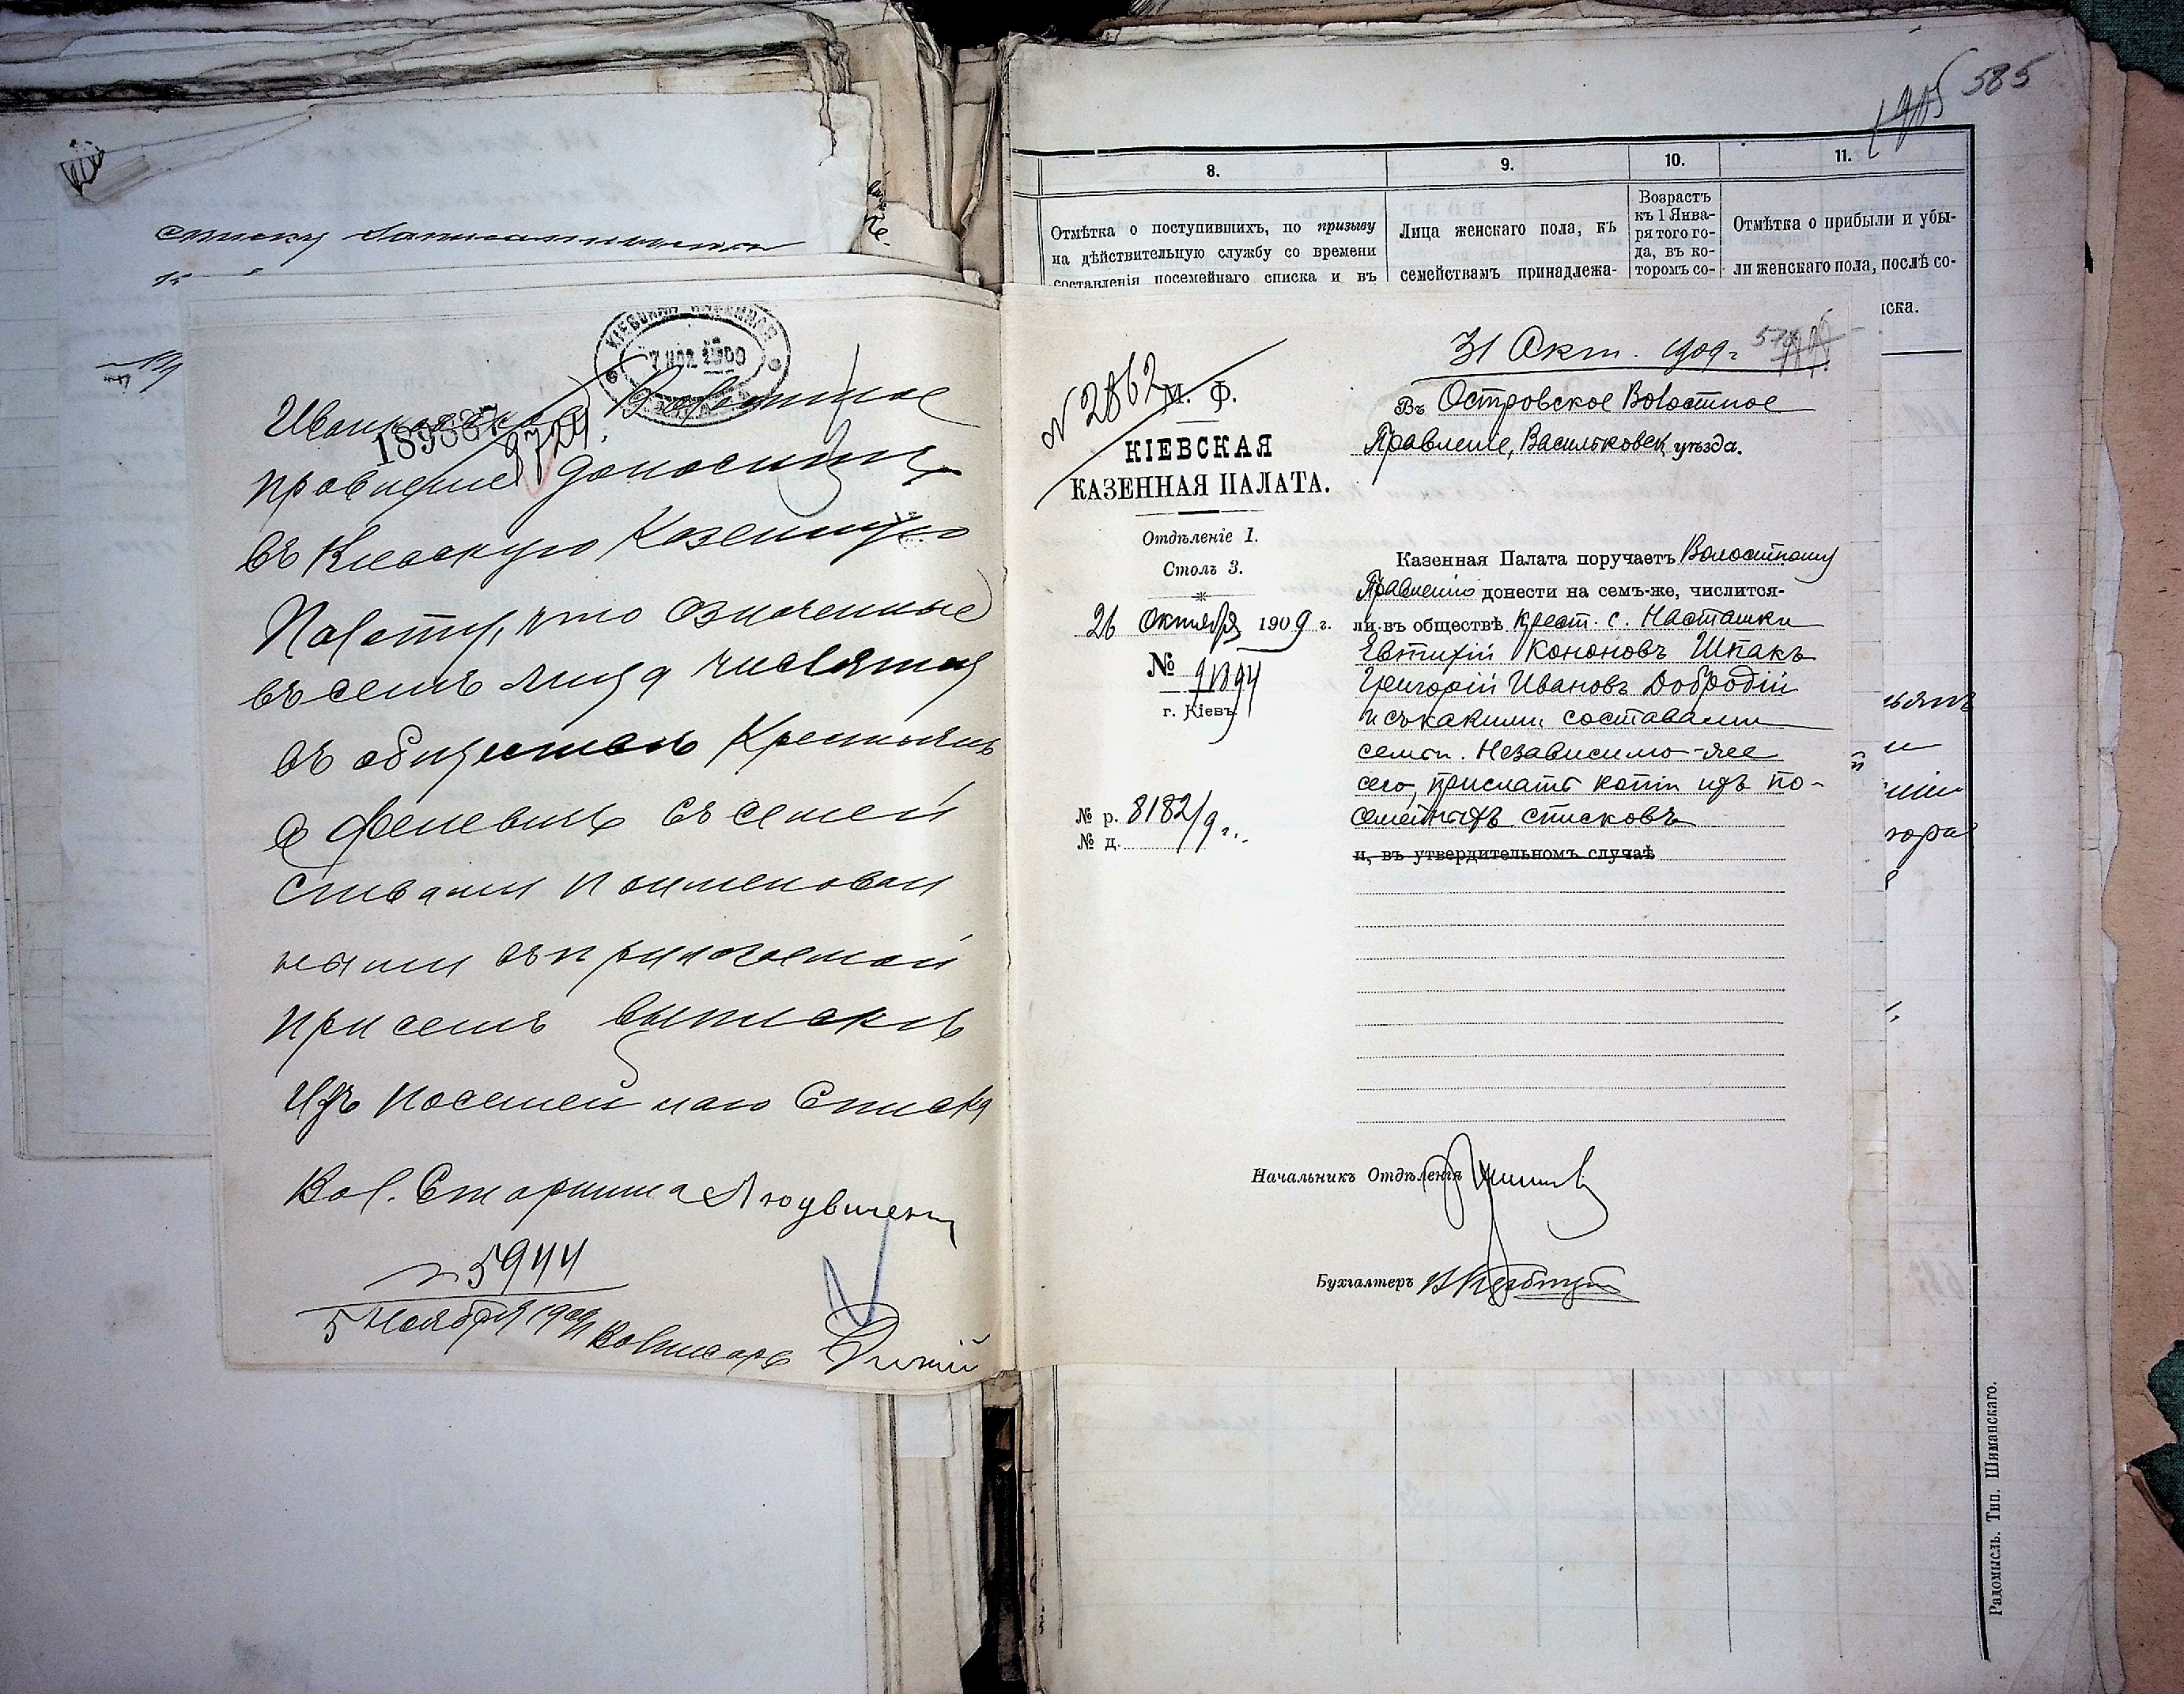 списку
Иванковское Волостное
правление доноситъ
въ Кіевскую Казенную
Палату, что означенные
въ семъ лица числятся
въ обществѣ крестьянъ
съ семей
ствами поименован
ными въ прилагаемой
при семъ выпискѣ
изъ посемейнаго списка
Вол. Старшина
№ 5944
5 Ноября 1909
Вол писарь
7 НОЯ 1909
189387
585
8.
9.
10.
11.
Отмѣтка о поступившихъ, по призыву
на дѣйствительную службу со времени
составленія посемейнаго списка и въ
Лица женскаго пола, къ
семействамъ принадлежа-
Возрастъ
къ 1 Янва-
ря того го-
да, въ ко-
торомъ со-
Отмѣтка о прибыли и убы-
ли женскаго пола, послѣ со-
иска.
№ 2862
М. Ф.
КІЕВСКАЯ
КАЗЕННАЯ ПАЛАТА.
Отдѣленіе 1.
Столъ 3.
26 Октября 1909 г.
№ 91394
г. Кіевъ
№ р. 8182/9 г.
№ д.
31 Окт. 1909 г.
Въ Островское Волостное
Правленіе, Васильковск уѣзда.
Казенная Палата поручаетъ Волостному
Правленію донести на семъ-же, числится-
ли въ обществѣ крест. с. Насташки
Евтихій Кононовъ Шпакъ
Григорій Ивановъ Добродій
и съ какими составами
семьи. Независимо-же
сего, прислать копіи изъ по-
семейныхъ списковъ
и, въ утвердительномъ случаѣ
Начальникъ Отдѣленія
Бухгалтеръ
Радомысль. Тип. Шиманскаго.